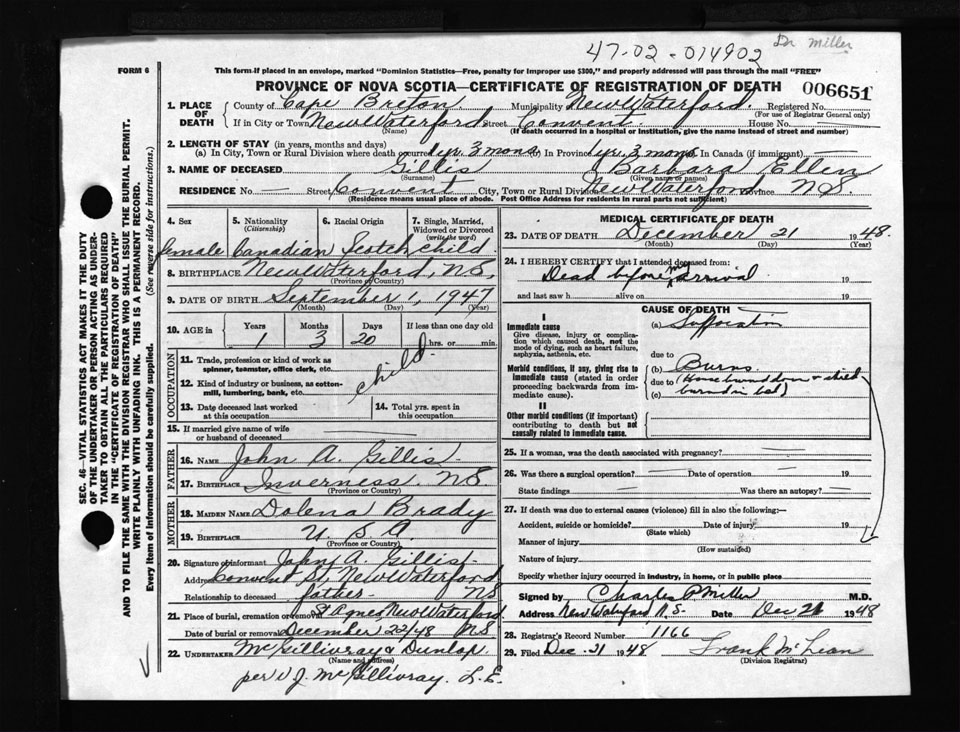 Dr Miller
47-02-014902
FORM 6
This form if placed in an envelope, marked "Dominion Statistics—Free, penalty for improper use $300," and properly addressed will pass through the mail "FREE"
PROVINCE OF NOVA SCOTIA—CERTIFICATE OF REGISTRATION OF DEATH 006651
1. PLACE OF DEATH
County of Cape Breton Municipality New Waterford. Registered No.
(For use of Registrar General only)
If in City or Town New Waterford Street Convent. House No. —
(Name) (If death occurred in a hospital or institution, give the name instead of street and number)
2. LENGTH OF STAY (in years, months and days)
(a) In City, Town or Rural Division where death occurred 1 yr. 3 mons. In Province 1 yr. 3 mons In Canada (if immigrant) —
3. NAME OF DECEASED Gillis Barbara Ellen
(Surname) (Given name or names)
RESIDENCE No. — Street Convent City, Town or Rural Division New Waterford Province NS
(Residence means usual place of abode. Post Office Address for residents in rural parts not sufficient)
4. Sex 5. Nationality (Citizenship) 6. Racial Origin 7. Single, Married, Widowed or Divorced (write the word)
female Canadian Scotch child
8. BIRTHPLACE New Waterford, N.S.
(Province or Country)
9. DATE OF BIRTH September 1, 1947
(Month) (Day) (Year)
10. AGE in Years Months Days If less than one day old
1 3 20 hrs. or min.
OCCUPATION
11. Trade, profession or kind of work as spinner, teamster, office clerk, etc.
child
12. Kind of industry or business, as cotton-mill, lumbering, bank, etc.
13. Date deceased last worked at this occupation 14. Total yrs. spent in this occupation
15. If married give name of wife or husband of deceased —
FATHER
16. NAME John A. Gillis.
17. BIRTHPLACE Inverness. NS
(Province or Country)
MOTHER
18. MAIDEN NAME Dolena Brady
19. BIRTHPLACE U. S. A.
(Province or Country)
20. Signature of informant John A. Gillis.
Address Convent St, New Waterford
Relationship to deceased father NS
21. Place of burial, cremation or removal St Agnes, New Waterford.
Date of burial or removal December 22/48 NS
22. UNDERTAKER McGillivray & Dunlop
(Name and address)
per J. McGillivray. L.E.
MEDICAL CERTIFICATE OF DEATH
23. DATE OF DEATH December 21 1948
(Month) (Day) (Year)
24. I HEREBY CERTIFY that I attended deceased from:
Dead before my arrival 19
and last saw h alive on 19
CAUSE OF DEATH
I
Immediate cause
Give disease, injury or complication which caused death, not the mode of dying, such as heart failure, asphyxia, asthenia, etc.
(a) Suffocation
due to
Morbid conditions, if any, giving rise to immediate cause (stated in order proceeding backwards from immediate cause).
(b) Burns.
due to (House burned down & child
(c) burned in bed)
II
Other morbid conditions (if important) contributing to death but not causally related to immediate cause.
25. If a woman, was the death associated with pregnancy? —
26. Was there a surgical operation? — Date of operation — 19
State findings — Was there an autopsy? —
27. If death was due to external causes (violence) fill in also the following:—
Accident, suicide or homicide? Date of injury 19
(State which)
Manner of injury
(How sustained)
Nature of injury
Specify whether injury occurred in industry, in home, or in public place
Signed by Charles P Miller M.D.
Address New Waterford N.S. Date Dec 21 1948
28. Registrar's Record Number 1166
29. Filed Dec. 21 1948 Frank McLean
(Division Registrar)
SEC. 46—VITAL STATISTICS ACT MAKES IT THE DUTY
OF THE UNDERTAKER OR PERSON ACTING AS UNDER-
TAKER TO OBTAIN ALL THE PARTICULARS REQUIRED
IN THE "CERTIFICATE OF REGISTRATION OF DEATH"
AND TO FILE THE SAME WITH THE DIVISION REGISTRAR WHO SHALL ISSUE THE BURIAL PERMIT.
WRITE PLAINLY WITH UNFADING INK. THIS IS A PERMANENT RECORD.
Every item of information should be carefully supplied. (See reverse side for instructions.)